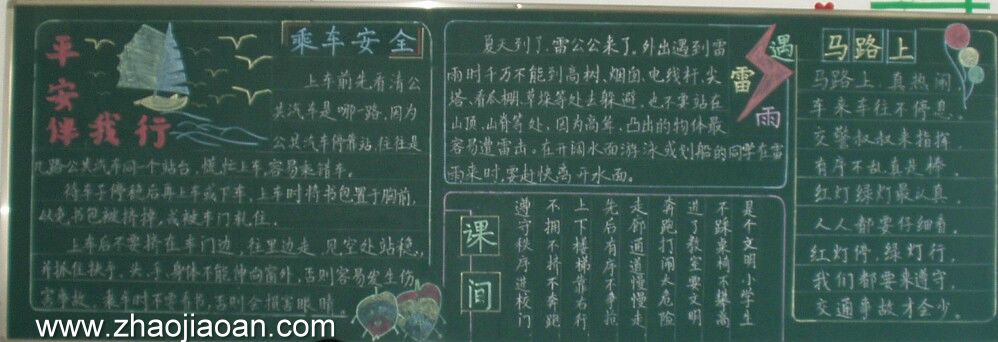 平
安
伴我行
乘车安全
上车前先看清公
共汽车是哪一路,因为
公共汽车停靠站,往往是
几路公共汽车同一个站台,慌忙上车,容易乘错车。
待车子停稳后再上车或下车,上车时将书包置于胸前,
以免书包被挤掉,或被车门轧住。
上车后不要挤在车门边,往里边走,见空处站稳,
并抓住扶手,头、手、身体不能伸向窗外,否则容易发生伤
害事故。乘车时不要看书,否则会损害眼睛。
夏天到了,雷公公来了,外出遇到雷
雨时千万不能到高树、烟囱、电线杆、尖
塔、看瓜棚、草垛等处去躲避,也不要站在
山顶、山脊等处,因为高耸、凸出的物体最
容易遭雷击。在开阔水面游泳或划船的同学在雷
雨来时,要赶快离开水面。
遇
雷
雨
课
间
是个文明小学生
不踩桌椅不攀高
进了教室要文明
奔跑打闹太危险
走郎通道慢慢走
先后有序不争抢
上下楼梯靠右行
不拥不挤不奔跑
遵守秩序进校门
马路上
马路上,真热闹,
车来车往不停息。
交警叔叔来指挥,
有序不乱真是棒。
红灯绿灯最认真,
人人都要仔细看。
红灯停,绿灯行,
我们都要来遵守,
交通事故才会少。
www.zhaojiaoan.com